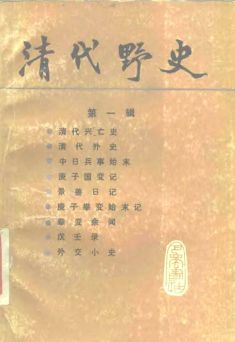 清代野史
第一辑
清代兴亡史
清代外史
中日兵事始末
庚子国变记
景善日记
庚子拳变始末记
拳变余闻
戊壬录
外交小史